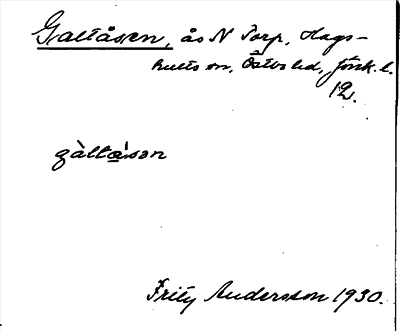 Galtåsen, ås N Torp, Hags-
hults sn, Östbo hd, Jönk. l.
12.
gàltǻsən
Fritz Andersson 1930.